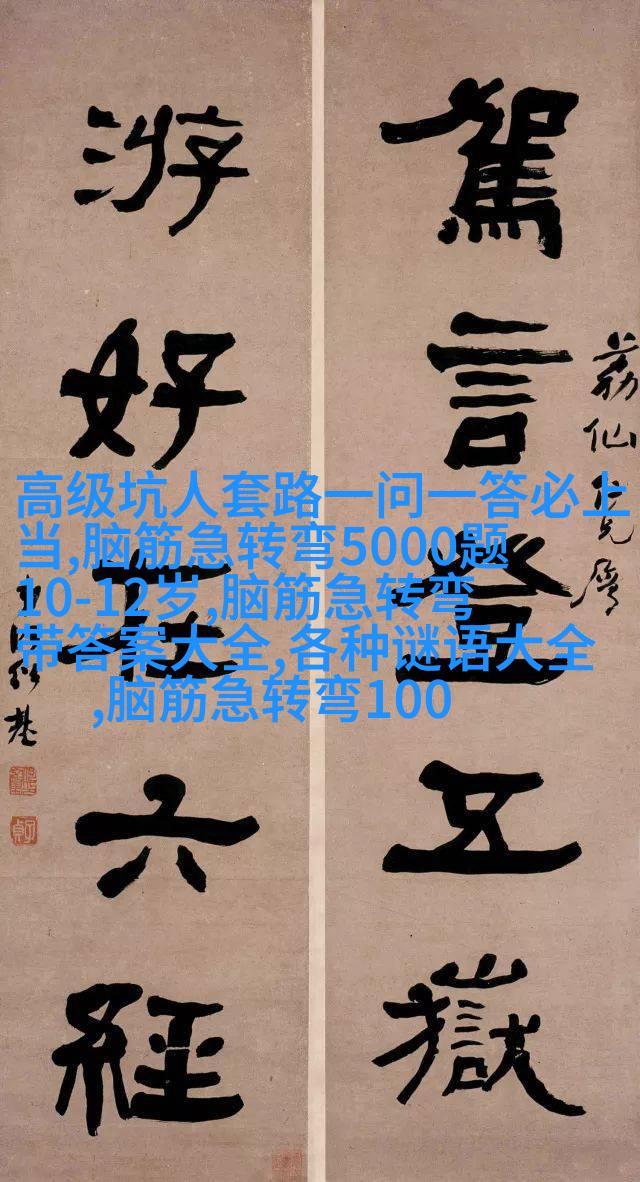 駕言登五嶽
荔仙仁兄屬
游好在六經
紹基
高级坑人套路一问一答必上
当,脑筋急转弯5000题
10-12岁,脑筋急转弯
带答案大全,各种谜语大全
,脑筋急转弯100